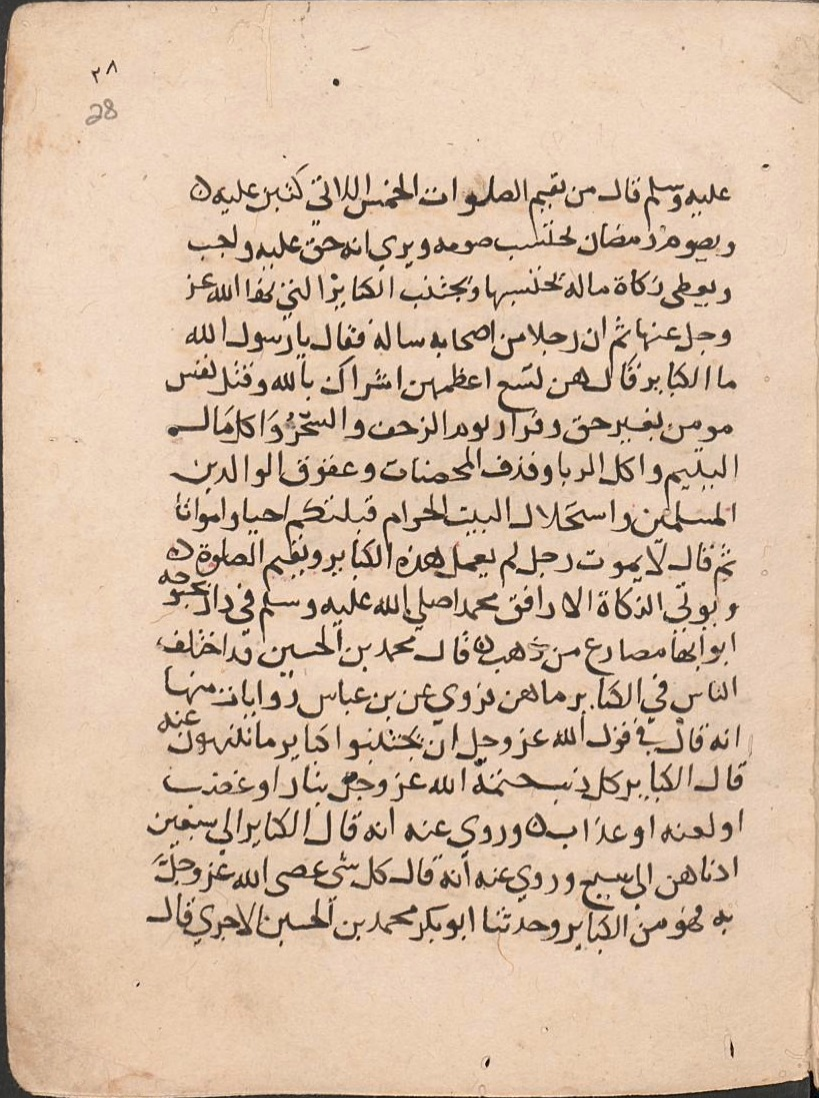 ٢٨
28
عليه وسلم قال من يقيم الصلوات الخمس اللاتي كتبن عليه
ويصوم رمضان يحتسب صومه ويري انه حق عليه واجب
ويعطي زكاة ماله يحتسبها ويجتنب الكباير التي نها الله عز
وجل عنها ثم ان رجلا من اصحابه ساله فقال يا رسول الله
ما الكباير قال هن تسع اعظمهن اشراك بالله وقتل نفس
مومن بغير حق وفرار يوم الزحف والسحر واكل مال
اليتيم واكل الربا وقذف المحصنات وعقوق الوالدين
المسلمين واستحلال البيت الحرام قبلتكم احيا وامواتا
ثم قال لا يموت رجل لم يعمل هذه الكباير ويقيم الصلوة
ويوتي الزكاة الا رافق محمدا صلي الله عليه وسلم في دار بحبوحه
ابوابها مصارع من ذهب قال محمد بن الحسين قد اختلف
الناس في الكباير ما هن فروي عن بن عباس روايات منها
انه قال في قول الله عز وجل ان تجتنبوا كباير ما تنهون عنه
قال الكباير كل ذنب ختمه الله عز وجل بنار او غضب
او لعنه او عذاب وروي عنه انه قال الكباير الي سبعين
ادناهن الي سبع وروي عنه انه قال كل شي عصي الله عز وجل
به فهو من الكباير وحدثنا ابو بكر محمد بن الحسين الاجري قال